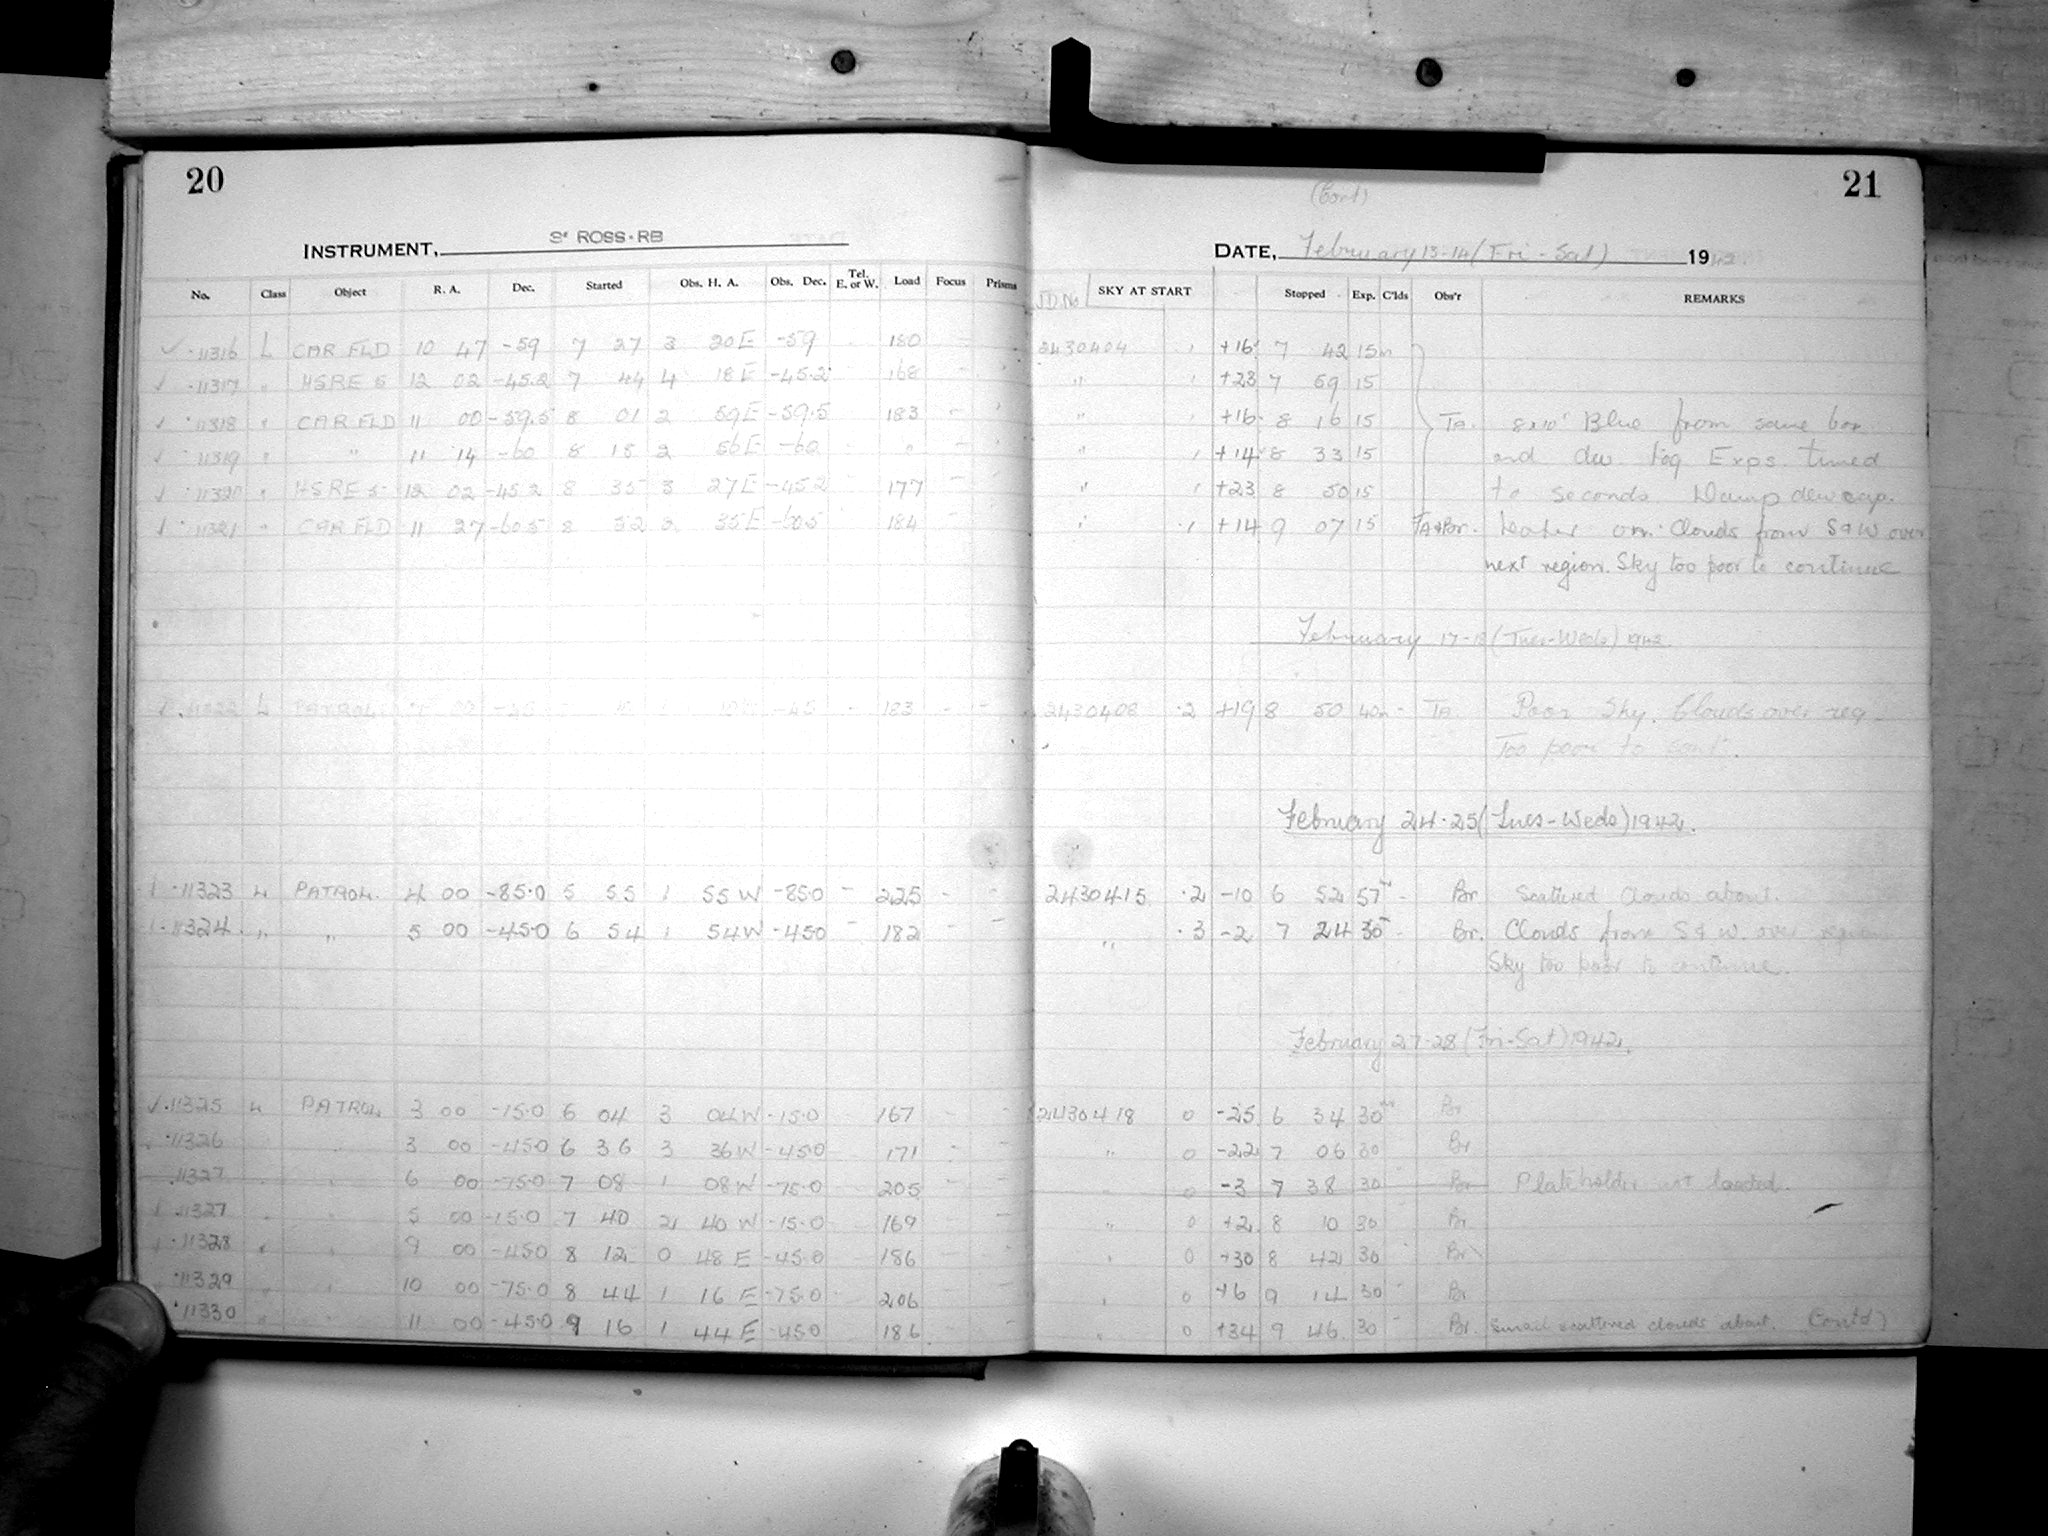 20
INSTRUMENT, ROSS-RB
No. Class Object R. A. Dec. Started Obs. H. A. Obs. Dec. Tel. E. or W. Load Focus Prisms
11316 L CAR FLD 10 47 -59 7 27 3 20E -59 180
11317 " HSRE 5 12 02 -45.2 7 44 4 18E -45.2 168
11318 " CAR FLD 11 00 -59.5 8 01 2 59E -59.5 183
11319 " " 11 14 -60 8 18 2 56E -60 "
11320 " HSRE 5 12 02 -45.2 8 35 3 27E -45.2 177
11321 " CAR FLD 11 27 -60.5 8 52 2 35E -60.5 184
11322 L PATROL -45 -45 183
11323 L PATROL. 4 00 -85.0 5 55 1 55W -85.0 - 225 - -
11324 " " 5 00 -45.0 6 54 1 54W -45.0 - 182 - -
11325 L PATROL 3 00 -15.0 6 04 3 04W -15.0 167
11326 " " 3 00 -45.0 6 36 3 36W -45.0 171
11327 " " 6 00 -75.0 7 08 1 08W -75.0 205
11327 " " 5 00 -15.0 7 40 2 40W -15.0 169
11328 " " 9 00 -45.0 8 12 0 48E -45.0 186
11329 " " 10 00 -75.0 8 44 1 16E -75.0 206
11330 " " 11 00 -45.0 9 16 1 44E -45.0 186
21
(Cont)
DATE, February 13-14 (Fri - Sat) 1942
JD No SKY AT START Stopped Exp. C'lds Obs'r REMARKS
2430404 1 +16 7 42 15m
" 1 +23 7 59 15
" 1 +16 8 16 15 TA. 8x10" Blue from same box
" 1 +14 8 33 15 and dev. tog Exps. timed
" 1 +23 8 50 15 to seconds. Damp dewcap.
" .1 +14 9 07 15 TA & Br. heater on. Clouds from S & W over
next region. Sky too poor to continue
February 17-18 (Tues-Weds) 1942
2430408 .2 +19 8 50 40m - TA Poor Sky. Clouds over reg.
Too poor to cont.
February 24-25 (Tues-Weds) 1942.
2430415 .2 -10 6 52 57m - Br Scattered Clouds about.
" .3 -2 7 24 30m - Br. Clouds from S & W. over region
Sky too poor to continue.
February 27-28 (Fri-Sat) 1942.
2430418 0 -25 6 34 30m Br
" 0 -22 7 06 30 Br
0 -3 7 38 30 Br Plateholder not loaded.
" 0 +2 8 10 30 Br
" 0 +30 8 42 30 Br
" 0 +6 9 14 30 Br
" 0 +34 9 46 30 Br. Small scattered clouds about. (Contd)